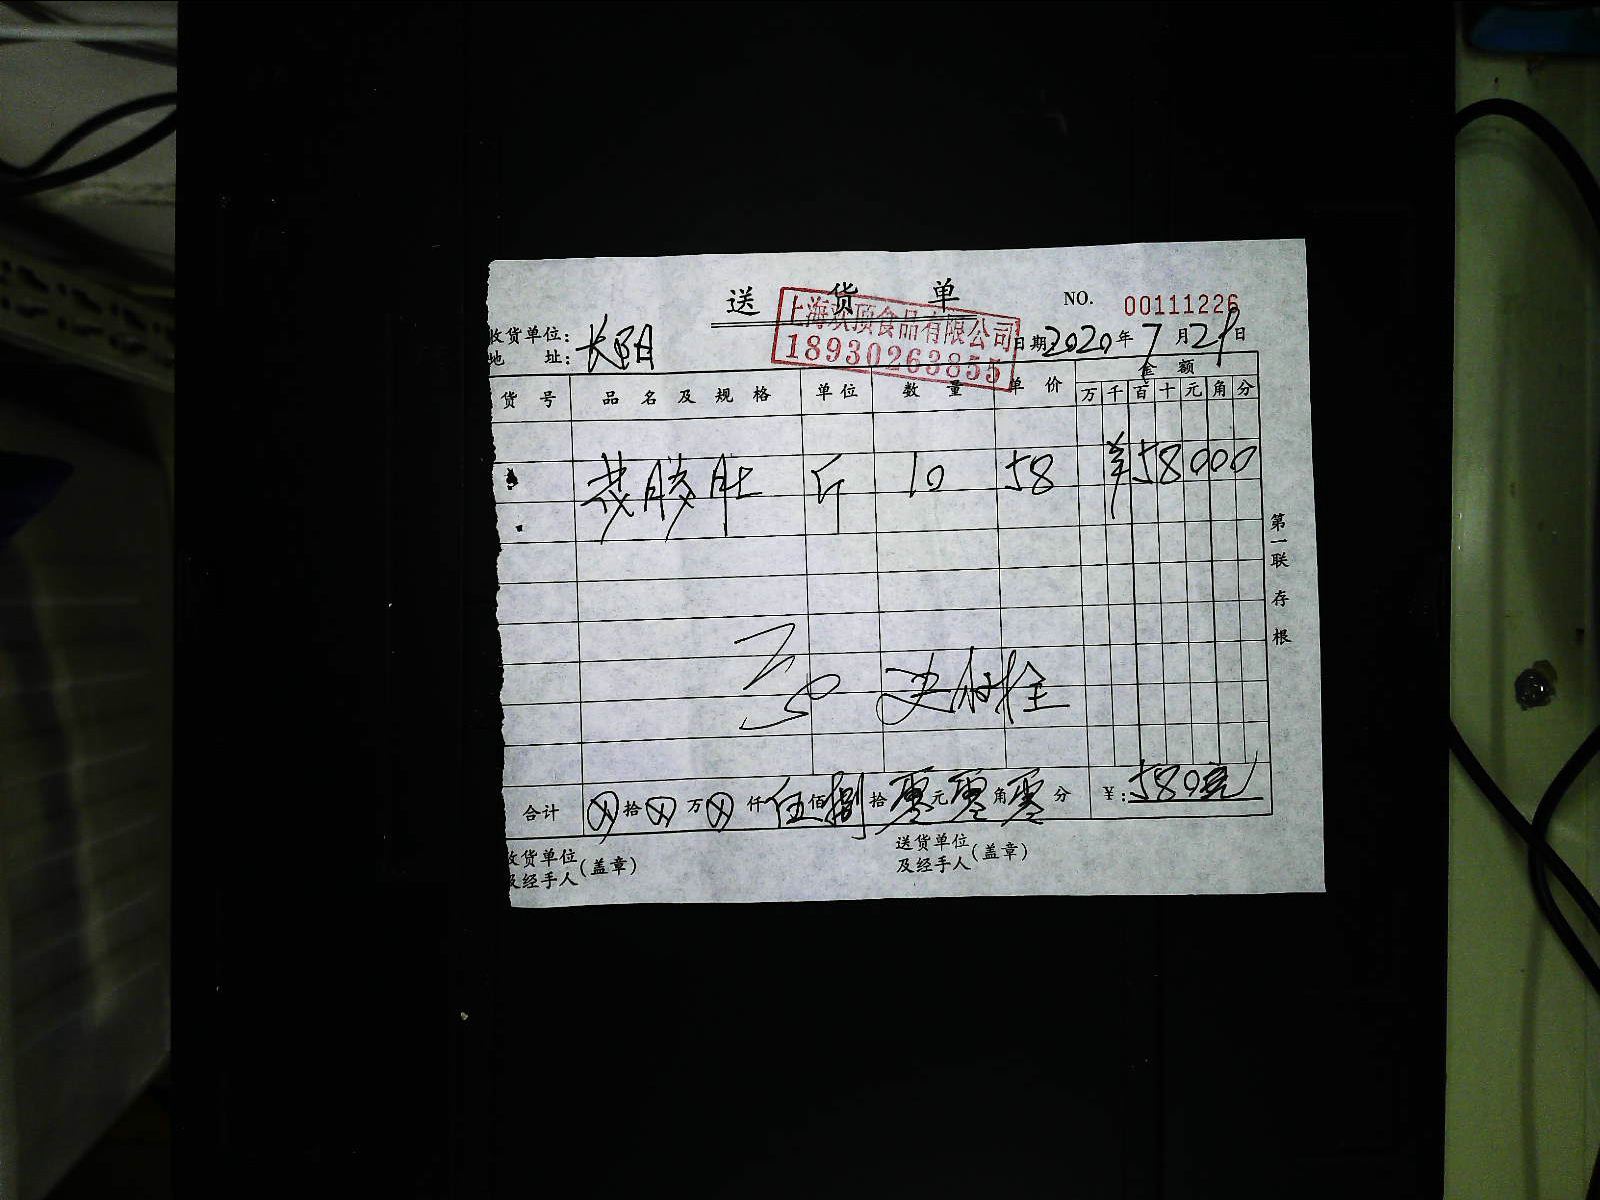 送货单
NO. 00111226
上海欢顶食品有限公司
18930263855
收货单位:
地址: 长阳
日期 2020年7月29日
货号 品名及规格 单位 数量 单价 金额
万 千 百 十 元 角 分
斤 10 58 ¥58000
第一联 存根
合计 ⊗拾⊗万⊗仟伍佰捌拾零元零角零分 ¥:580
收货单位
及经手人(盖章)
送货单位
及经手人(盖章)